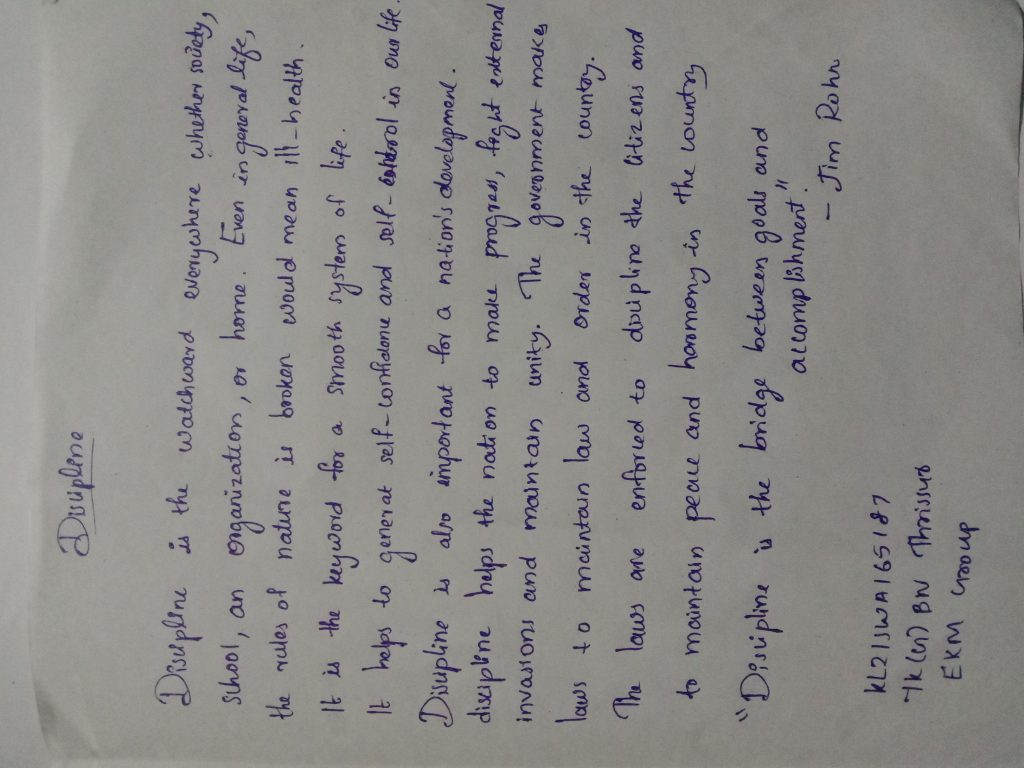 Discipline
Discipline is the watchword everywhere whether society,
School, an organization, or home. Even in general life,
the rules of nature is broken would mean ill-health.
It is the keyword for a smooth system of life.
It helps to generat self-confidence and self-control in our life.
Discipline is also important for a nation's development.
discipline helps the nation to make progress, fight external
invasions and maintain unity. The government makes
laws to maintain law and order in the country.
The laws are enforced to discipline the citizens and
to maintain peace and harmony in the country
"Discipline is the bridge between goals and
accomplishment."
- Jim Rohn
KL21SWA165187
7K(n) BN Thrissur
EKM Group